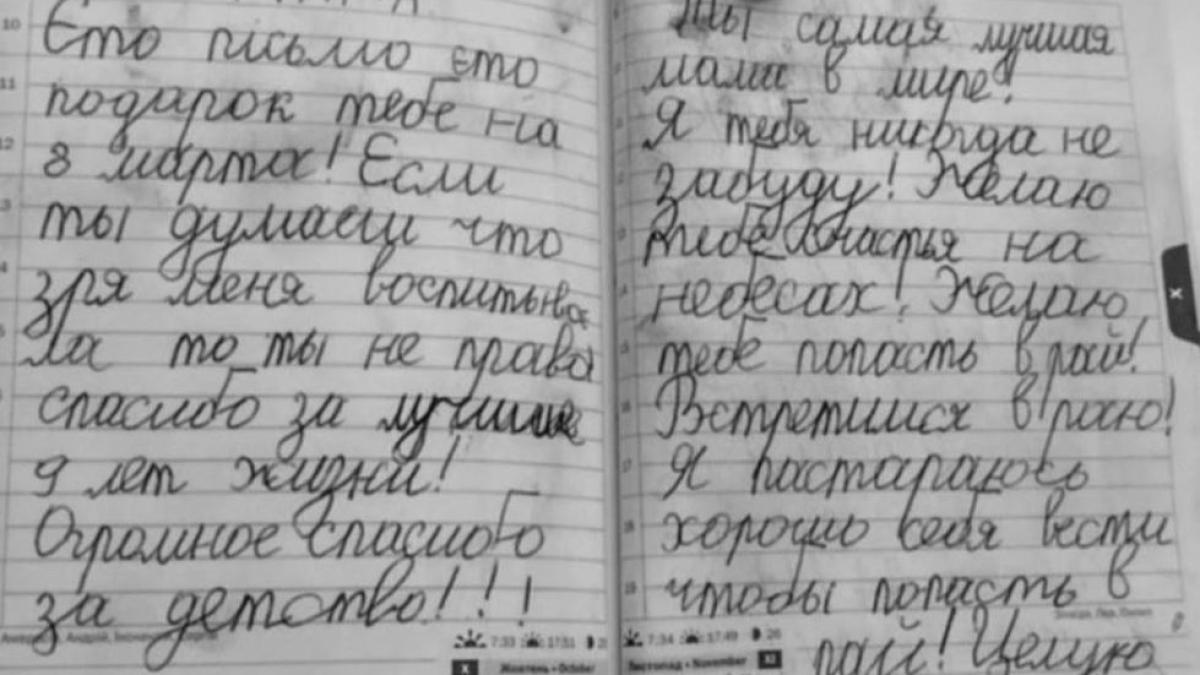 10 Єто письмо єто
11 подарок тебе на
12 8 марта! Если
ты думаеш что
зря меня воспитыва
ла то ты не права
спасибо за лучшие
9 лет жизни!
Огромное спасибо
за детство!!!
7:33 17:51
X Жовтень • October
Ты самая лучшая
мама в мире!
Я тебя никогда не
забуду! Желаю
тебе счастья на
небесах! Желаю
тебе попасть в рай!
Встретимся в раю!
Я пастараюсь
хорошо себя вести
чтобы попасть в
рай! Целую
7:34 17:49 26
Листопад • November XI
X